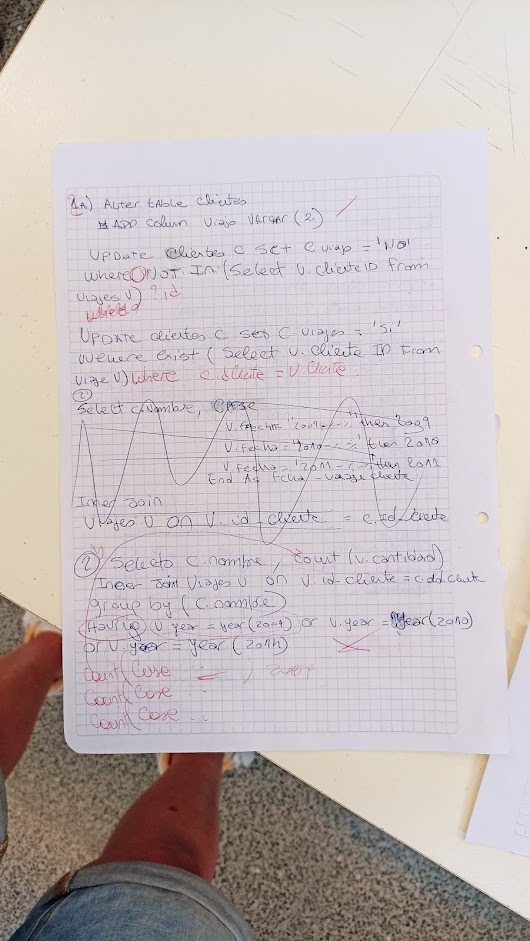 1A) Alter table clientes
ADD column viajo VARCHAR (2)
UPDATE clientes C set C.viajo = 'NO'
where NOT IN (Select V.clienteID from
viajes V) ? id
where
UPDATE clientes C set C.viajes = 'Si'
Wehere exist ( Select V. cliente ID From
viaje V) where c.idcliente = V. Cliente
2)
Select c.nombre, Case
V.fecha = '2009-%-%' then 2009
V.fecha = '2010-%-%' then 2010
V.fecha = '2011-%-%' then 2011
End As fecha-viaje cliente
Inner Join
Viajes V on V. id_cliente = c.id_cliente
2) Selecto C.nombre, count (v.cantidad)
Inner Join Viajes V on V.id-cliente = c.id.client
group by ( C.nombre)
Having V.year = year(2009) or V.year = year(2010)
or V.year = year (2011)
Count( Case
Count( Case
Count( Case